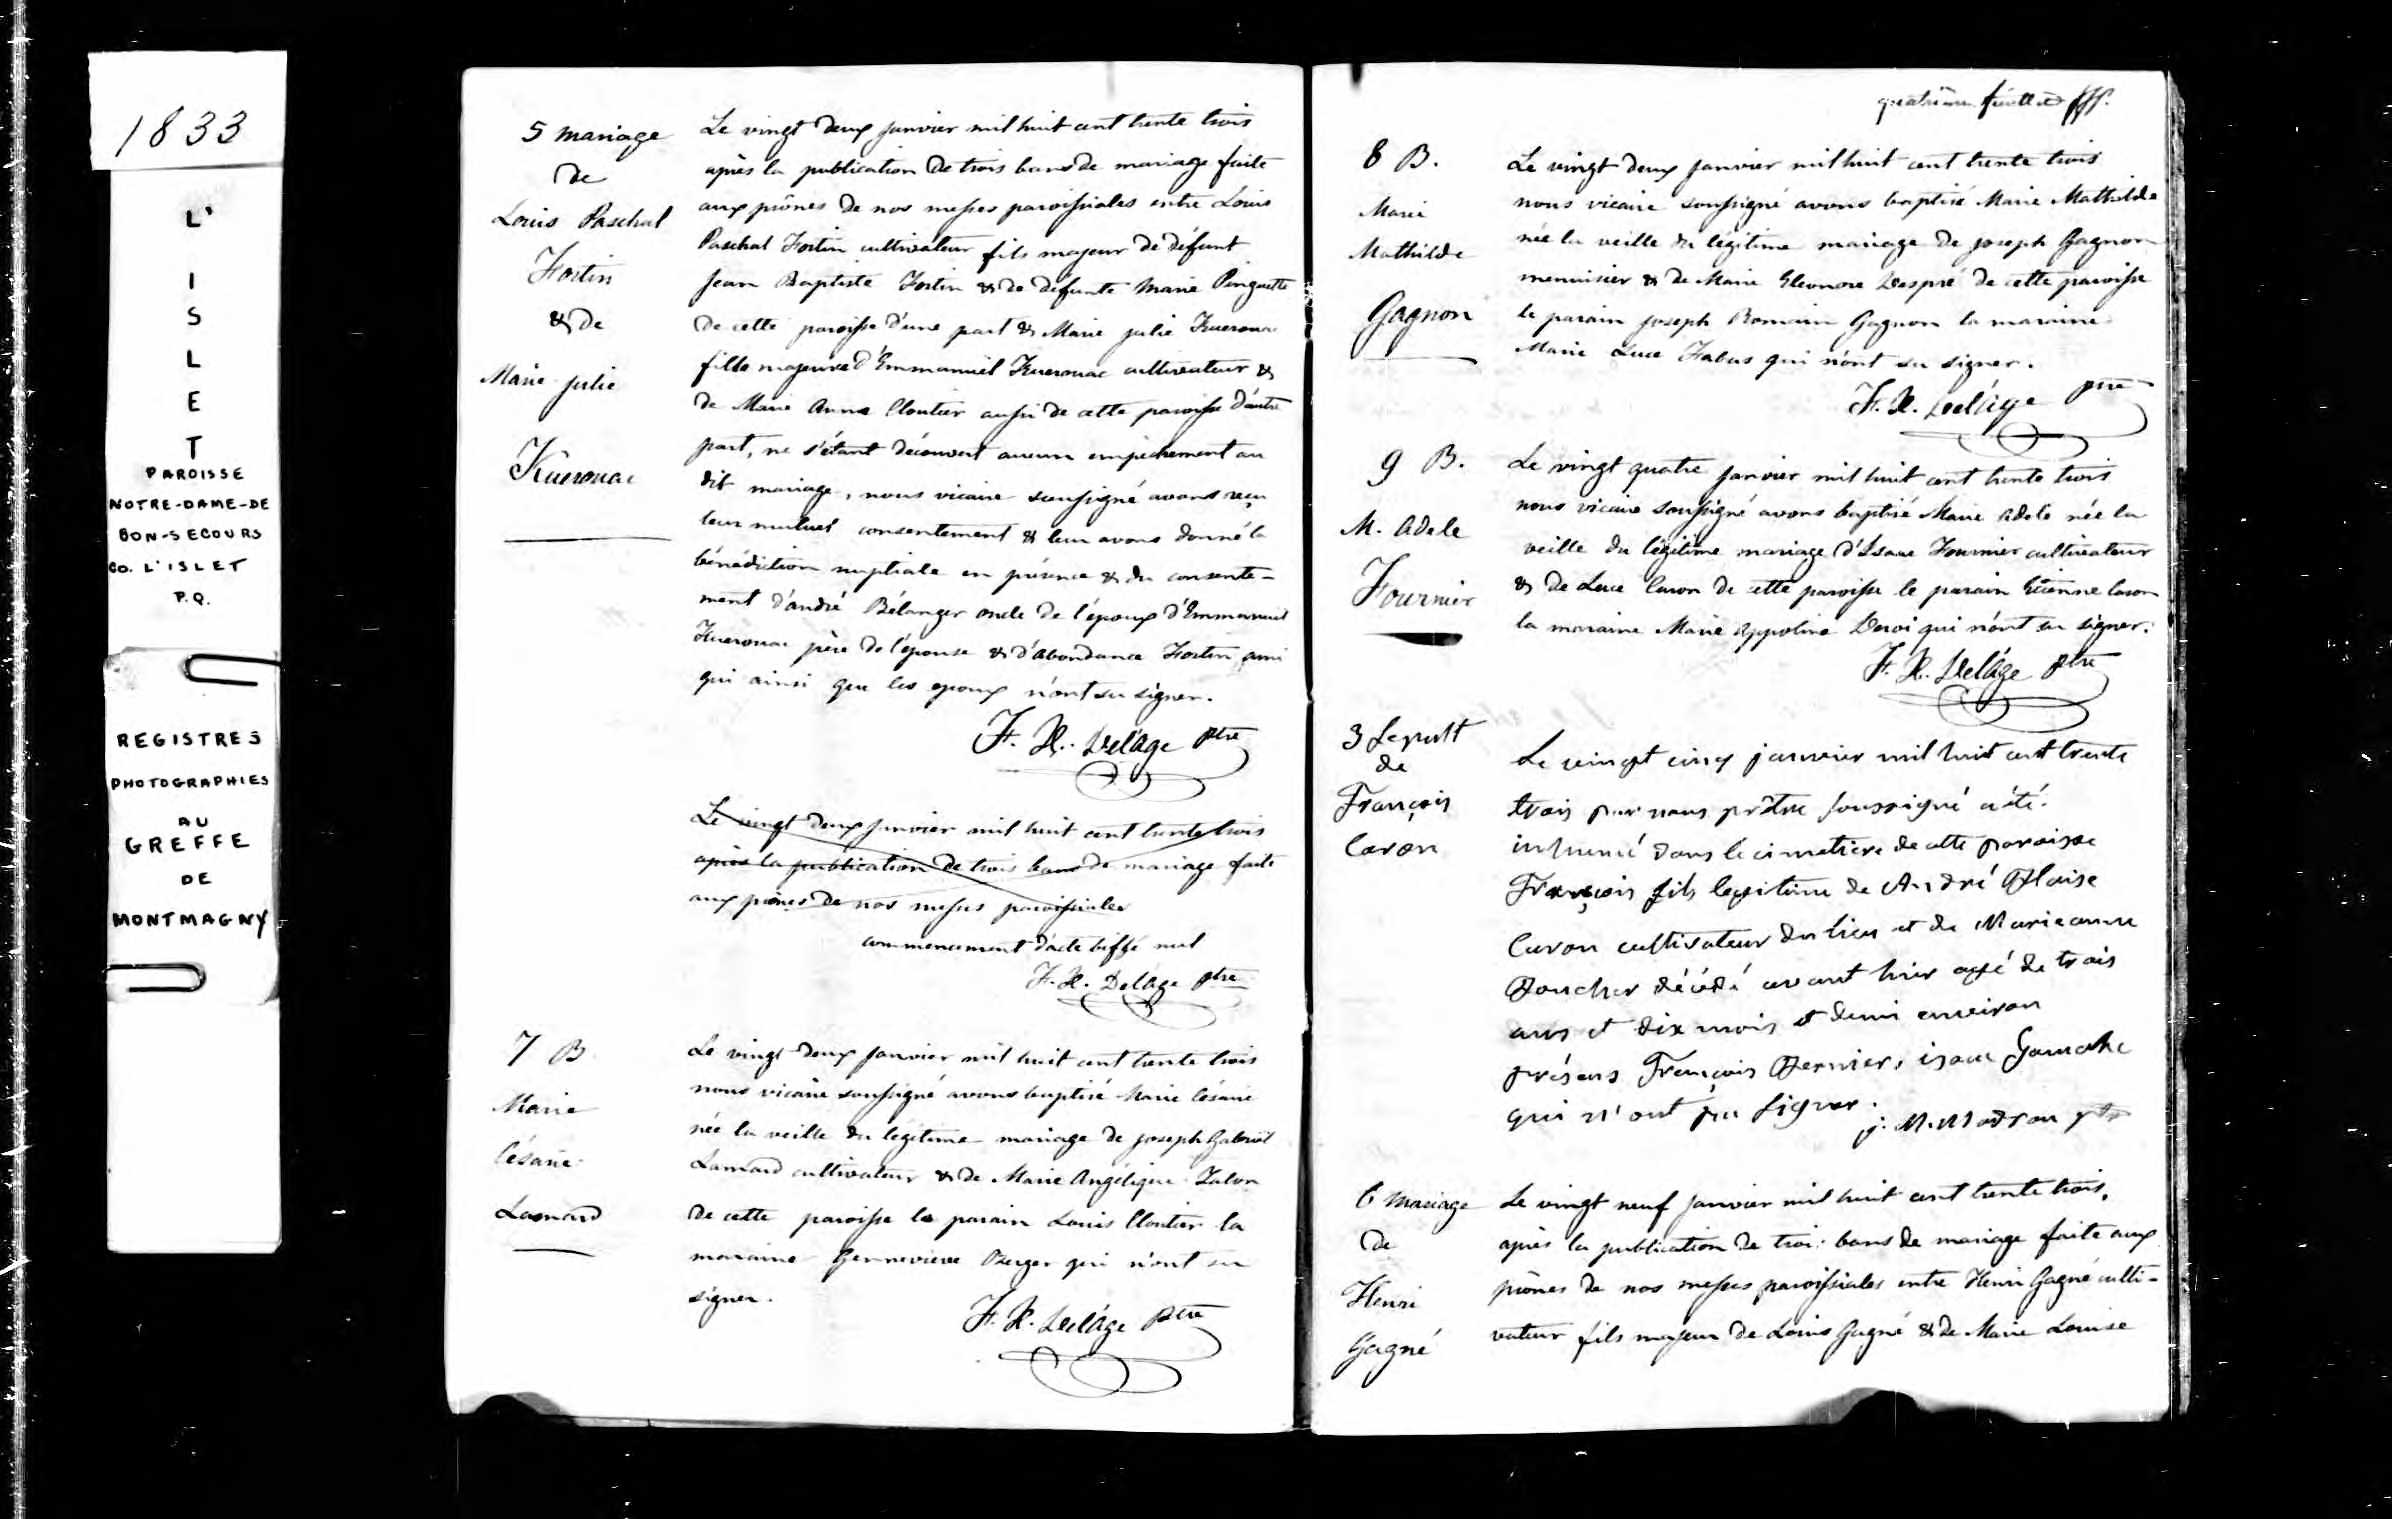 1833
L'
I
S
L
E
T
PAROISSE
NOTRE-DAME-DE
BON-SECOURS
CO. L'ISLET
P.Q.
REGISTRES
PHOTOGRAPHIES
AU
GREFFE
DE
MONTMAGNY
5 mariage
de
Louis Paschal
Fortin
& de
Marie julie
Kuerouac
Le vingt deux janvier mil huit cent trente trois
après la publication de trois bans de mariage faite
aux prônes de nos messes paroissiales entre Louis
Paschal Fortin cultivateur fils majeur de défunt
Jean Baptiste Fortin & de défunte Marie Pinguette
de cette paroisse d'une part & Marie julie Kuerouac
fille majeure d'Emmanuel Kuerouac cultivateur &
de Marie Anne Cloutier aussi de cette paroisse d'autre
part, ne s'étant découvert aucun empêchement au
dit mariage, nous vicaire soussigné avons reçu
leur mutuel consentement & leur avons donné la
bénédiction nuptiale en présence & du consente-
ment d'andré Bélanger oncle de l'époux d'Emmanuel
Kuerouac père de l'épouse & d'abondance Fortin ami
qui ainsi que les epoux n'ont su signer.
F. X. Delâge ptre
Le vingt deux janvier mil huit cent trente trois
après la publication de trois bans de mariage faite
aux prônes de nos messes paroissiales
commencement d'acte biffé nul
F. X. Delâge ptre
7 B
Marie
Césarie
Lamard
Le vingt deux janvier mil huit cent trente trois
nous vicaire soussigné avons baptisé Marie Césarie
née la veille du légitime mariage de joseph Gabriel
Lamard cultivateur & de Marie Angélique Talon
de cette paroisse le parain Louis Cloutier la
maraine Gennevieve Berger qui n'ont su
signer.
F. X. Delâge ptre
quatrième feuillet
8 B.
Marie
Mathilde
Gagnon
Le vingt deux janvier mil huit cent trente trois
nous vicaire soussigné avons baptisé Marie Mathilde
née la veille du légitime mariage de joseph Gagnon
menuisier & de Marie Eleonore Despré de cette paroisse
le parain joseph Romain Gagnon la maraine
Marie Luce qui n'ont su signer.
F. X. Delâge ptre
9 B.
M. Adele
Fournier
Le vingt quatre janvier mil huit cent trente trois
nous vicaire soussigné avons baptisé Marie Adele née la
veille du légitime mariage d'Isaac Fournier cultivateur
& de Luce Caron de cette paroisse le parain Etienne Caron
la maraine Marie Appoline qui n'ont su signer.
F. X. Delâge ptre
3 Sepult
de
François
Caron
Le vingt cinq janvier mil huit cent trente
trois par nous prêtre soussigné a été
inhumé dans le cimetiere de cette paroisse
François fils legitime de André Blaise
Caron cultivateur du lieu et de Marieanne
Boucher décédé avant hier agé de trois
ans et dix mois et demi environ
présens François Bernier, isaac Gamache
qui n'ont pu signer.
ptre
6 mariage
de
Henri
Gagné
Le vingt neuf janvier mil huit cent trente trois,
après la publication de trois bans de mariage faite aux
prônes de nos messes paroissiales entre Henri Gagné culti-
vateur fils majeur de Louis Gagné & de Marie Louise